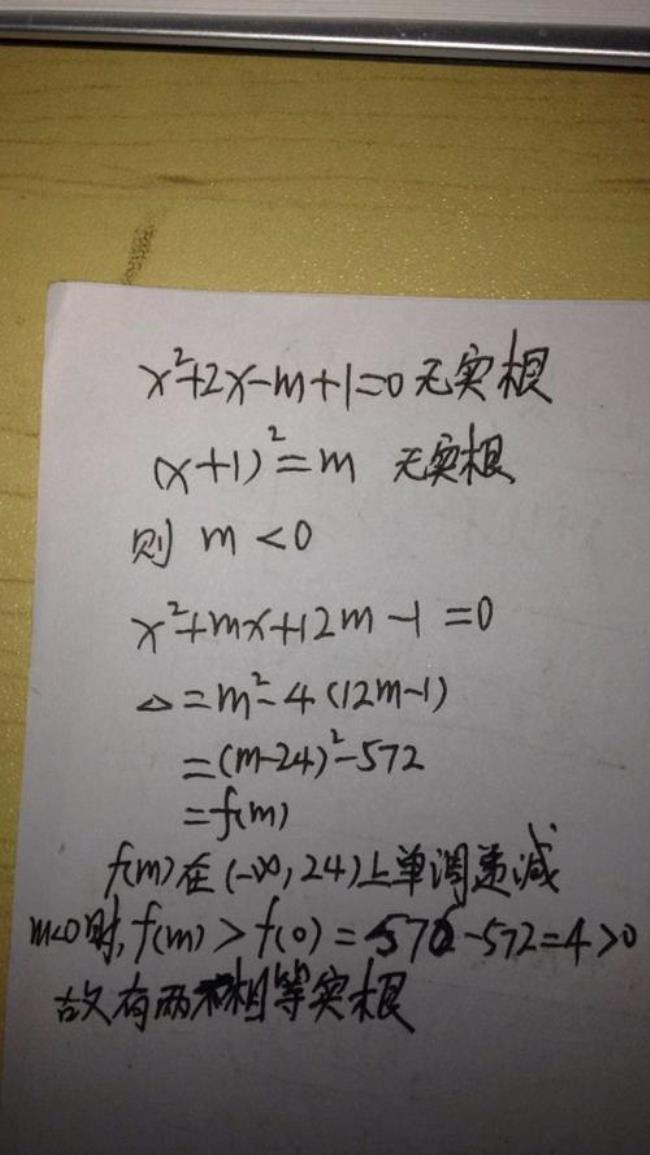 x²+2x-m+1=0 无实根
(x+1)²=m 无实根
则 m<0
x²+mx+12m-1=0
△=m²-4(12m-1)
=(m-24)²-572
=f(m)
f(m)在(-∞,24)上单调递减
m<0时,f(m)>f(0)=576-572=4>0
故有两不相等实根